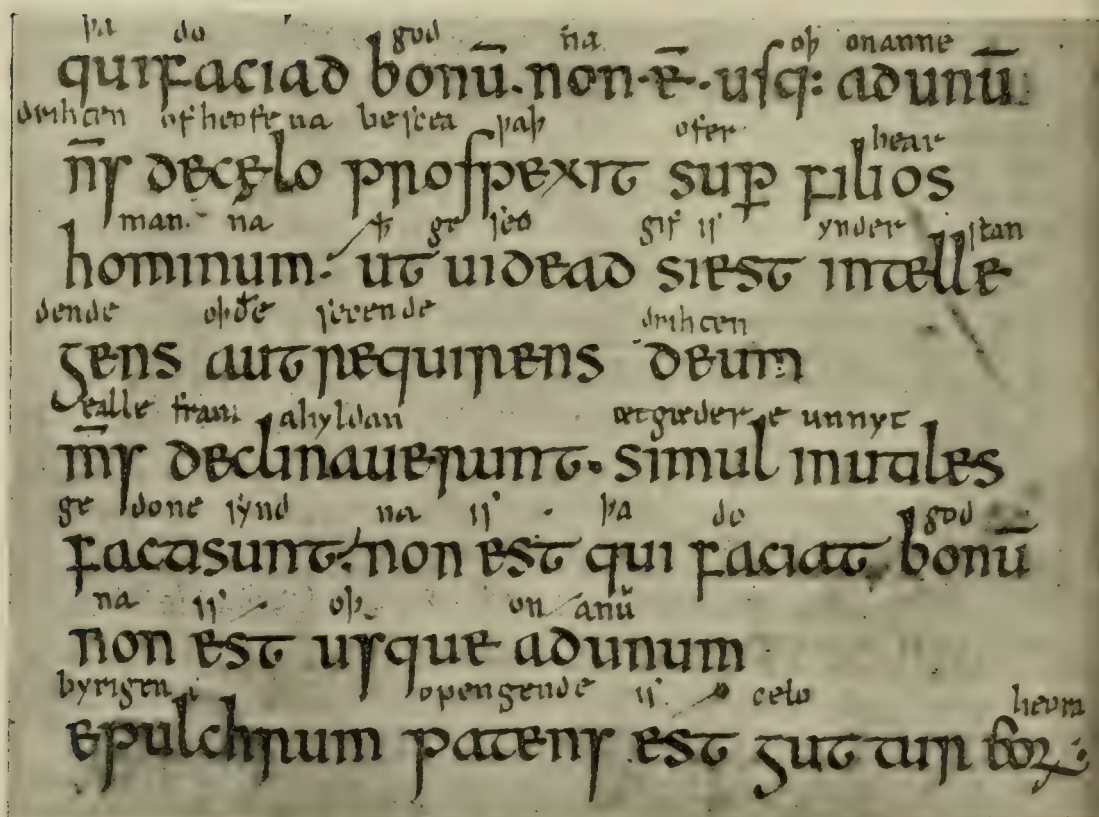 þa do god na oþ onanne
quifaciad bonū. non·ē·usq: adunū
drihcen ofheofe na bescea þaþ ofer bear
n̄s decęlo prospexit sup̱ filios
man na þ̄ ge seo gif is ynder stan
hominum· ut uidead siest intelle
dende oþðe secende drihcen
gens aut requirens deum
ealle fram ahyldan ætgæder e unnyt
m̄s declinauerunt· simul inutiles
ge done synd na is þa do god
facti sunt· non est qui faciat bonū
na is oþ on anū
non est usque adunum
byrigen opengende is celo heora
epulchrum patens est gut tur hoꝝ: